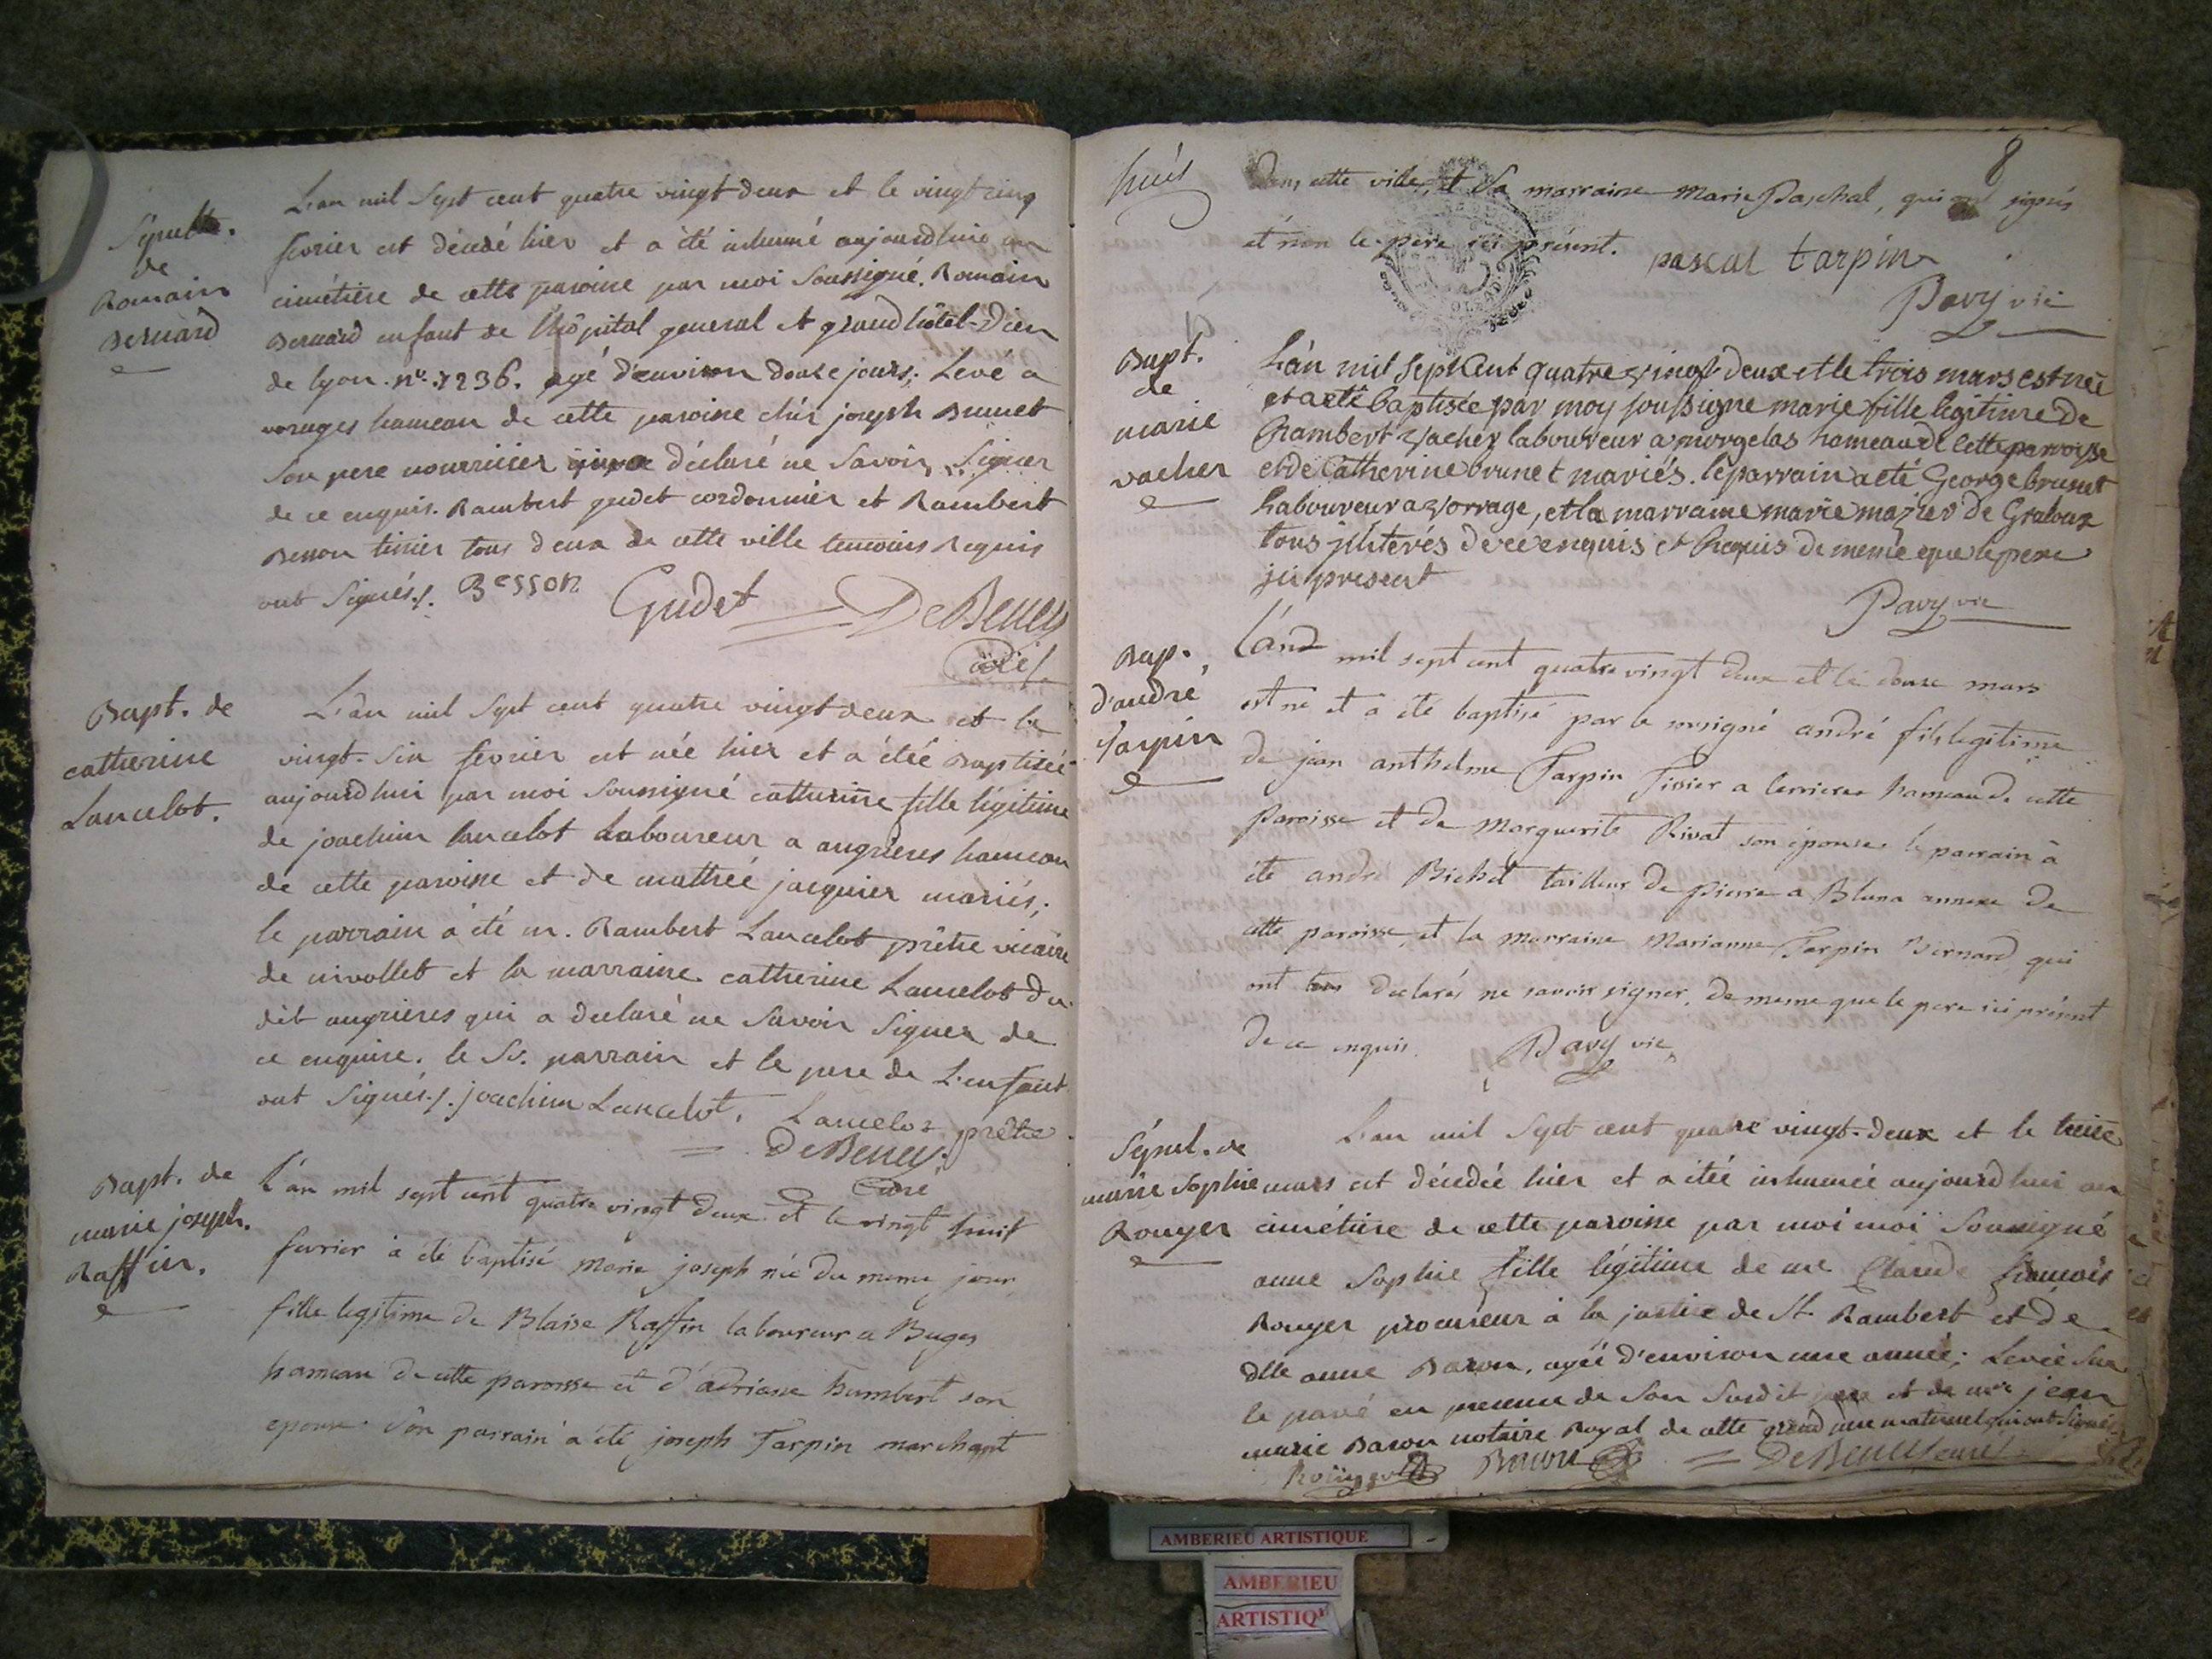 Sépult.
de
Romain
Bernard
L'an mil Sept cent quatre vingt deux et le vingt cinq
fevrier est décédé hier et a été inhumé aujourdhui au
cimétiere de cette paroisse par moi Soussigné. Romain
Bernard enfant de l'hôpital general et grand hôtel-Dieu
de lyon. n°. 7236. agé d'environ douze jours; Levé a
vorages hameau de cette paroisse chés joseph Brunet
Son pere nourricier qui a déclaré ne Savoir Signer
de ce enquis. Rambert gudet cordonnier et Rambert
Besson tissier tous deux de cette ville temoins Requis
ont Signés./. Besson
Gudet DeBeney
curé
Bapt. de
catherine
Lancelot.
L'an mil Sept cent quatre vingt deux et le
vingt-Six fevrier est née hier et a étée Baptisée
aujourdhui par moi Soussigné catherine fille légitime
de joachim lancelot Laboureur a angrieres hameau
de cette paroisse et de mathée jacquier mariés;
le parrain a été m. Rambert Lancelot prêtre vicaire
de nivollet et la marraine catherine Lancelot du
dit angrieres qui a declaré ne Savoir Signer de
ce enquise. le Sr. parrain et le pere de L'enfant
ont Signés./. joachim Lancelot. Lancelot prêtre
DeBeney.
Curé
Bapt. de
marie joseph.
Raffin.
L'an mil sept cent quatre vingt deux et le vingt huit
fevrier à été baptisé Marie joseph née du meme jour
fille legitime de Blaise Raffin laboureur a Buges
hameau de cette paroisse et d'adrianne humbert son
epouse. Son parrain à été joseph Tarpin marchant
8
huis
Dans cette ville, et Sa marraine Marie Paschal, qui ont signés
et non le pere ici présent. pascal tarpin
Pavy vic
Bapt.
de
marie
vacher
L'an mil Sept Cent quatre vingt deux et le trois mars est née
et a etê baptisée par moy soussigne marie fille legitime de
Rambert Vacher laboureur a morgelas hameau de Cette parroisse
et de Catherine brunet mariés. le parrain a eté George brunet
Laboureur a vorrage, et la marraine marie mazier de Graloux
tous jlliterés de ce enquis et Requis de meme que le pere
jci present
Pavy vic
Bap.
d'andré
Tarpin
L'an mil sept cent quatre vingt deux et le douze mars
est né et a été baptisé par le sousigné andré fils legitime
de jean anthelme Tarpin Tisier a hameau de cette
paroisse et de Marguerite Rivat son épouse le parrain à
été andré Bichet tailleur de pierre a Blana annexe de
cette paroisse, et la marraine Marianne Tarpin Bernard, qui
ont tous declarés ne savoir signer, de meme que le pere ici présent
de ce enquis. Pavy vic
Sépul. de
marie Sophie
Rouyer
L'an mil Sept cent quatre vingt-deux et le treize
mars est décédée hier et a étée inhumée aujourdhui au
cimétiere de cette paroisse par moi moi Soussigné
anne Sophie fille légitime de me Claude francois
Rouyer procureur à la justice de St Rambert et de
dlle anne Baron, agée d'environ une année; Levée Sur
le pavé en presence de Son Susdit pere et de me jean
marie Baron notaire Royal de cette grand pere maternel qui ont Signés
Rouyer Baron DeBeney curé
AMBERIEU ARTISTIQUE
AMBERIEU
ARTISTIQ